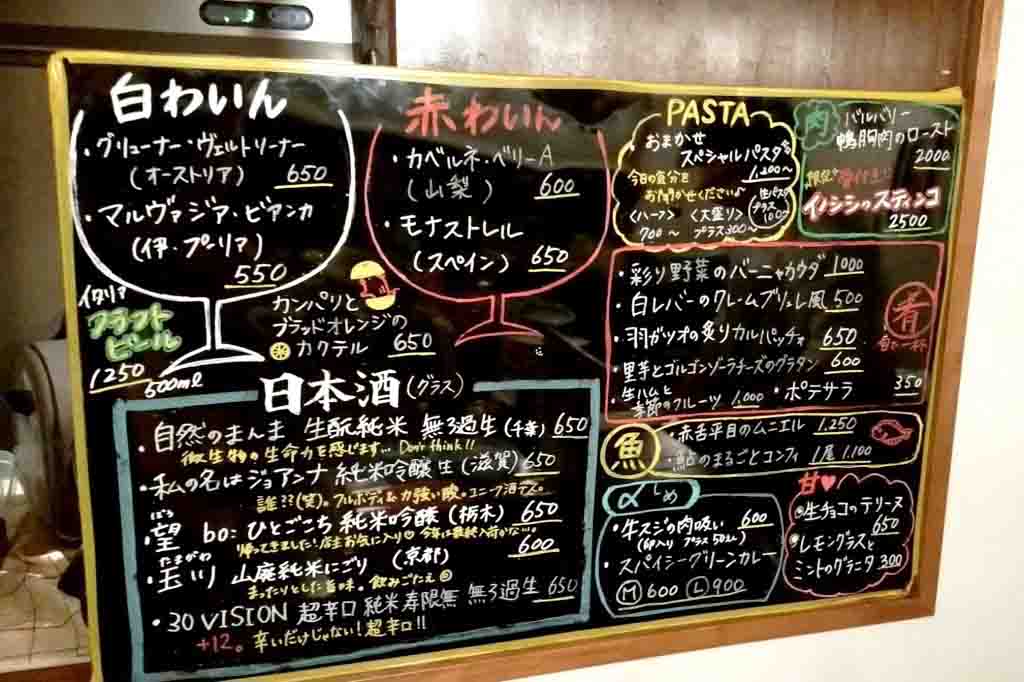 白わいん
・グリューナー・ヴェルトリーナー
(オーストリア) 650
・マルヴァジア・ビアンカ
(伊・プーリア)
550
赤わいん
・カベルネ・ベリーA
(山梨) 600
・モナストレル
(スペイン) 650
イタリア
クラフト
ビール
1250
500ml
カンパリと
ブラッドオレンジの
カクテル 650
PASTA
おまかせ
スペシャルパスタ
1,200~
今日の気分を
お聞かせください♪
〈ハーフ〉 〈大盛り〉
700~ プラス300~
生パスタ
プラス
100
肉
バルバリー
鴨胸肉のロースト
2000
限定 骨付き!
イノシシのスティンコ
2500
・彩り野菜のバーニャカウダ 1000
・白レバーのクレームブリュレ風 500
・羽ガツオの炙りカルパッチョ 650
・里芋とゴルゴンゾーラチーズのグラタン 600
・生ハムと
季節のフルーツ 1,000
・ポテサラ
350
肴
魚
・赤舌平目のムニエル 1,250
・鮎のまるごとコンフィ 1尾 1,100
〆 しめ
・牛スジの肉吸い 600
・スパイシーグリーンカレー
Ⓜ 600 Ⓛ 900
甘♥
生チョコのテリーヌ
650
レモングラスと
ミントのグラニータ 300
日本酒(グラス)
・自然のまんま 生酛純米 無ろ過生(千葉) 650
微生物の生命力を感じます… Don't think!!
・私の名はジョアンナ 純米吟醸生(滋賀) 650
誰??(笑)。フルボディ&力強い酸。ユニーク酒デス。
ぼう
・望 bo: ひとごこち 純米吟醸(栃木) 650
帰ってきました!店主お気に入り♡ 今年は最終入荷かな…
たまがわ
・玉川 山廃純米にごり (京都) 600
まったりとした旨味。飲みごたえ◎
・30 VISION 超辛口 純米 寿限無 無ろ過生 650
+12。 辛いだけじゃない!超辛口!!